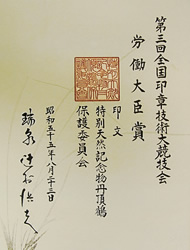 第三回全国印章技術大競技会
労働大臣賞
印文
特別天然記念物丹頂鶴
保護委員会
昭和五十五年八月二十三日